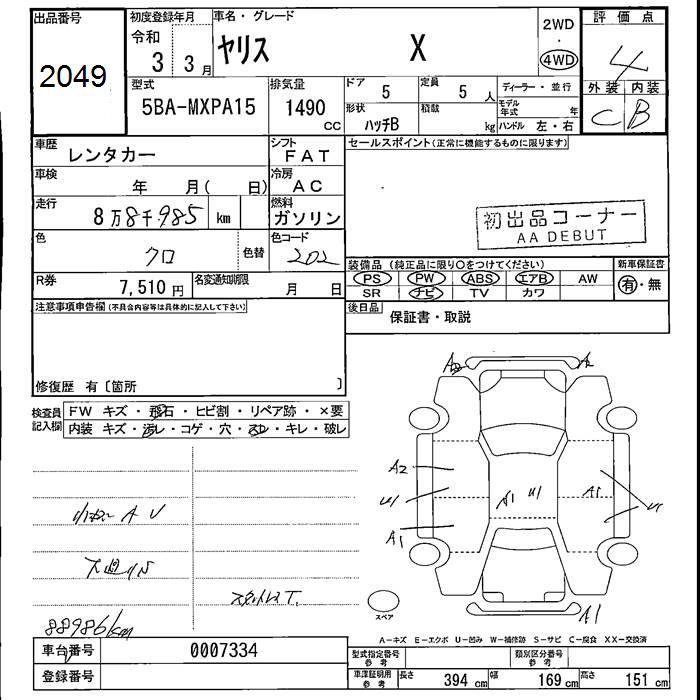 出品番号
2049
初度登録年月
令和
3 3月
車名・グレード
ヤリス X
2WD
・
4WD
評価点
4
外装 内装
C B
型式
5BA-MXPA15
排気量
1490
CC
ドア
5
定員
5 人
形状
ハッチB
積載
kg
ディーラー・並行
モデル年式 年
ハンドル 左・右
車歴
レンタカー
シフト
FAT
車検
年 月( 日)
冷房
AC
走行
8万8千985 km
燃料
ガソリン
色
クロ
色替
色コード
202
R券
7,510円
名変通知期限
月 日
セールスポイント(正常に機能するものに限ります)
初出品コーナー
AA DEBUT
装備品 (純正品に限り○をつけてください)
PS PW ABS エアB AW
SR ナビ TV カワ
新車保証書
有・無
後日品
保証書・取説
注意事項申告欄(不具合内容等は具体的に記入して下さい)
修復歴 有〔箇所 〕
検査員記入欄
FW キズ・飛石・ヒビ割・リペア跡・×要
内装 キズ・汚レ・コゲ・穴・スレ・キレ・破レ
88986km
A2
A1
A1
U1
A1
A1
スペア
A―キズ E―エクボ U―凹み W―補修跡 S―サビ C―腐食 XX―交換済
車台番号
0007334
登録番号
型式指定番号
参考
類別区分番号
参考
車庫証明用
参考
長さ 394 cm
幅 169 cm
高さ 151 cm